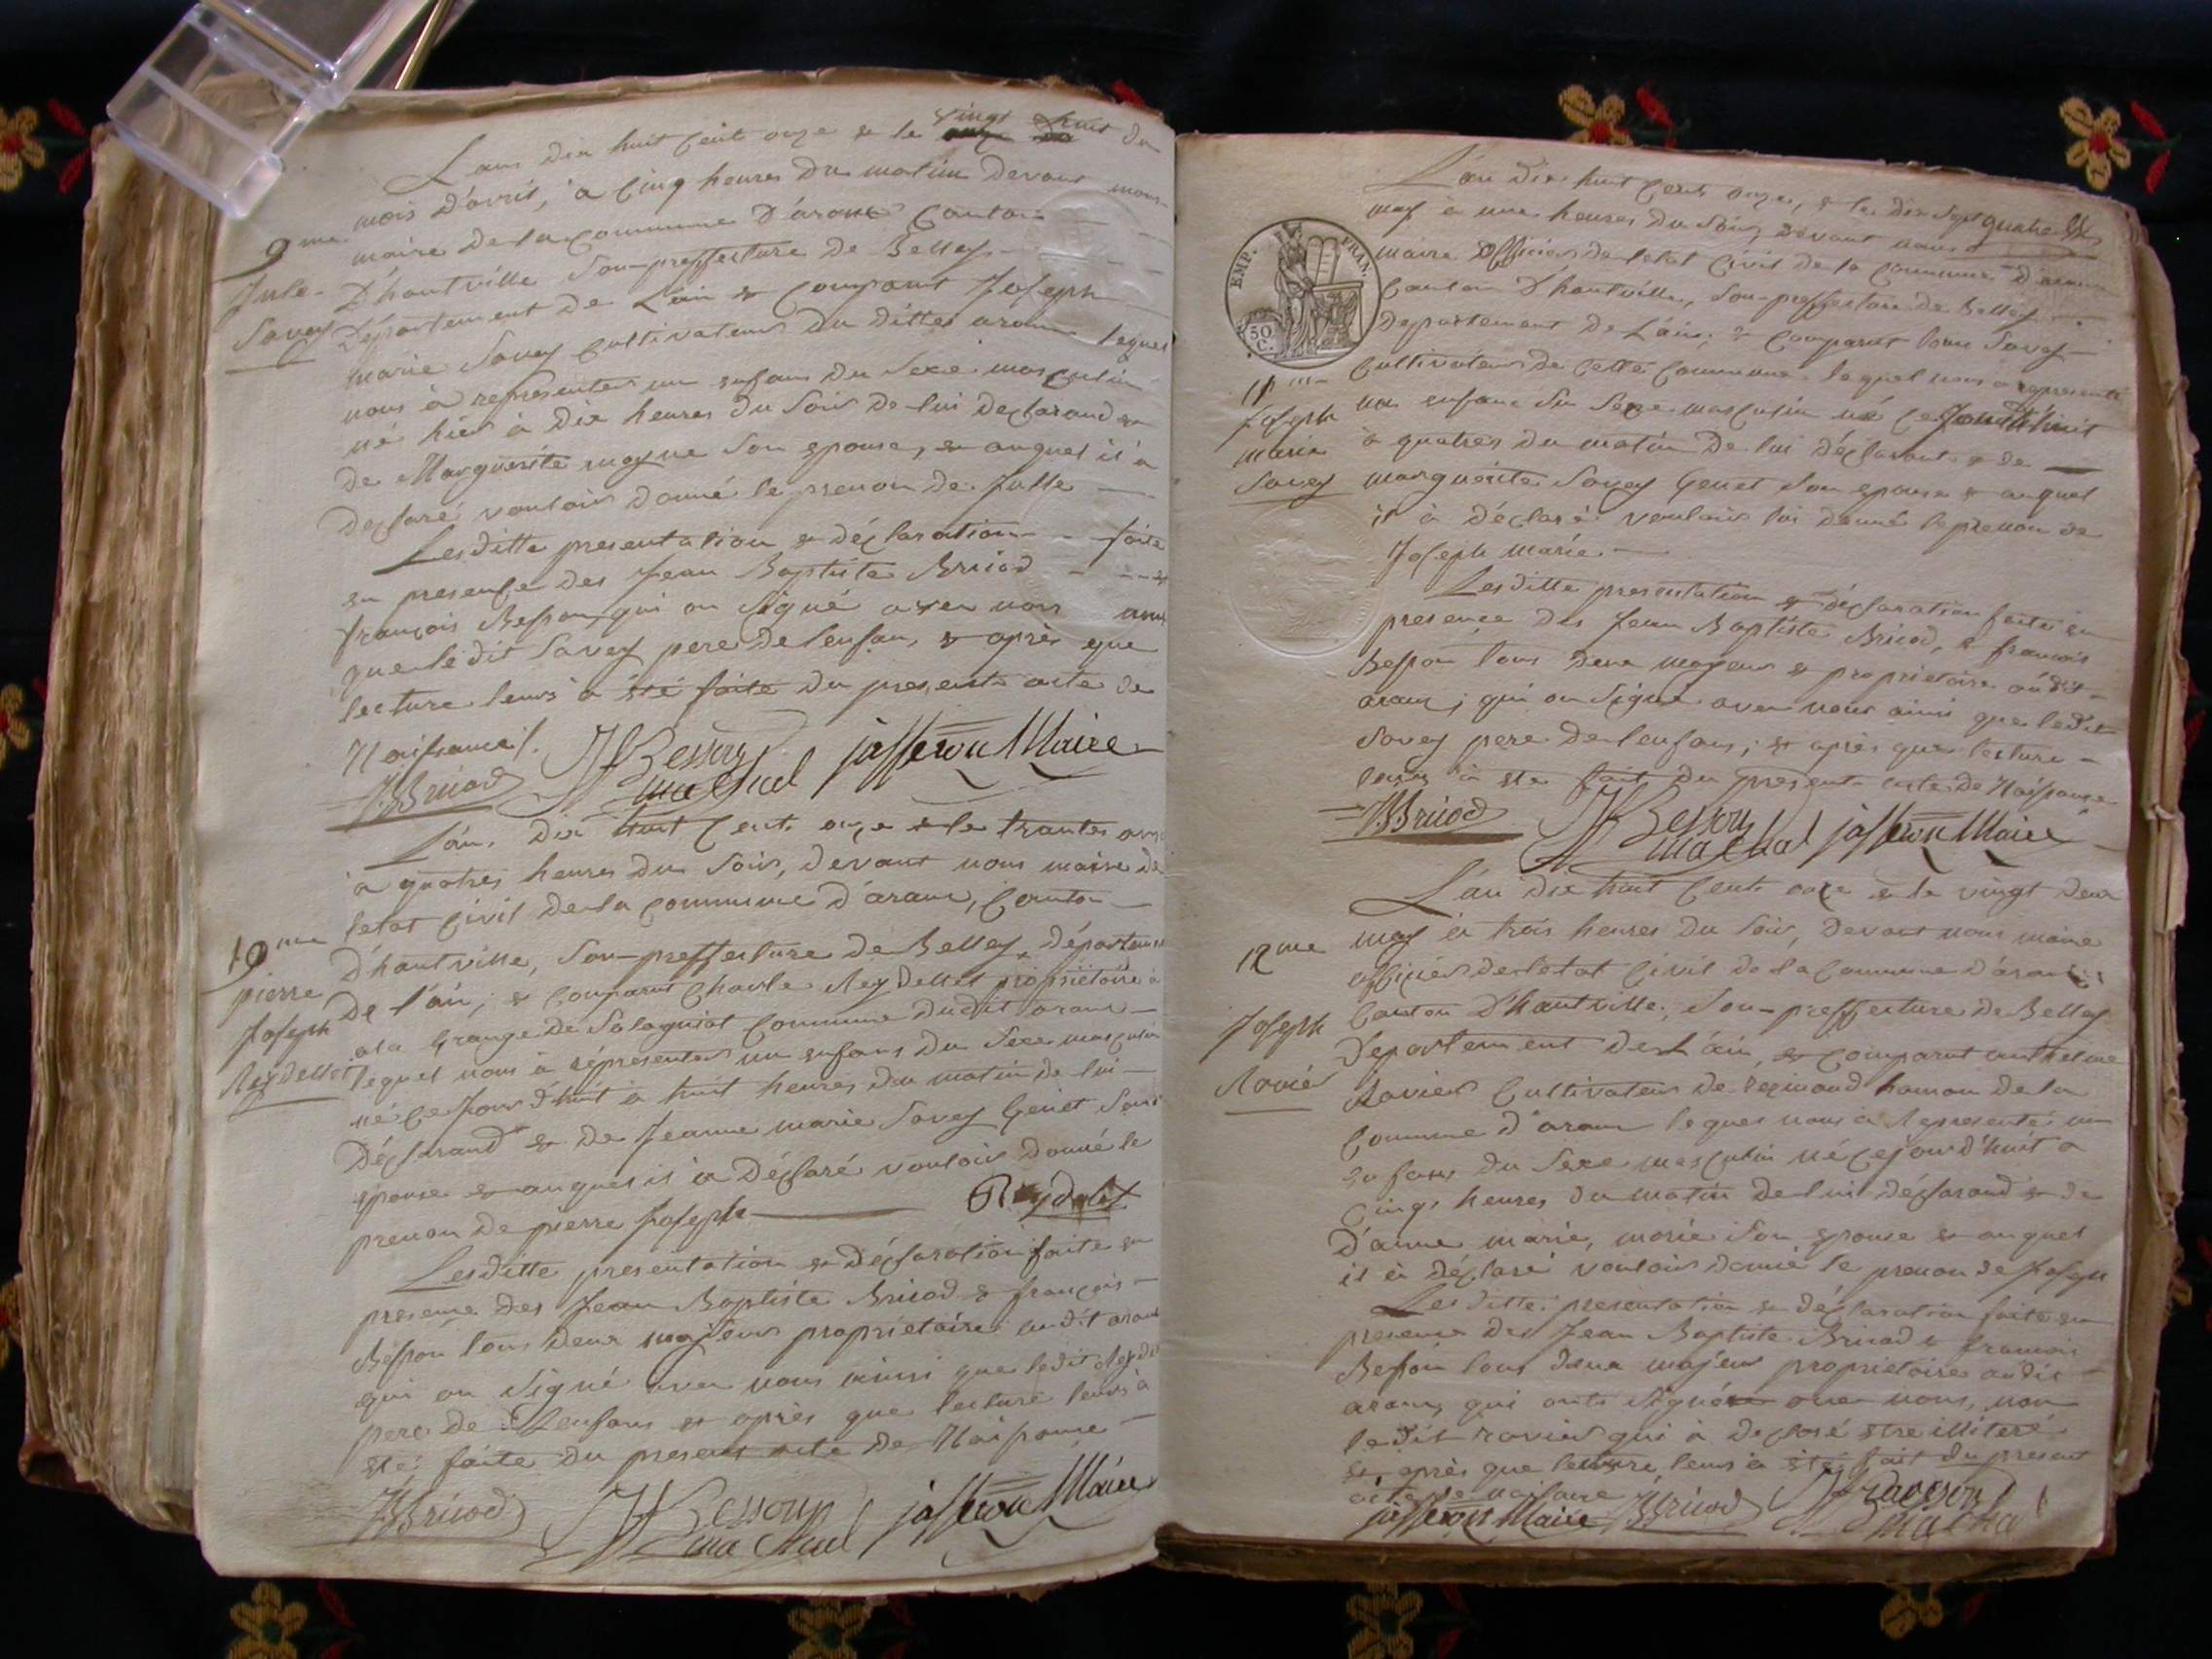 L'an dix huit Cent onze & le vingt huit du
mois d'avril, à Cinq heures du matin devant nous
maire de la Commune D'aranc Canton
9me
D'hautville Sou-preffecture de Belley
Jule
Departement de L'ain & Comparut Joseph
Savey
marie Savey Cultivateur du dittes aranc lequel
nous à representer un enfans du Sexe masculin
né hier à Dix heures du Soir de lui Declarand &
de Marguerite moyne Son epouse, & auquel il à
declaré vouloir donné le prenon de Julle
Lesditte presentation & déclaration faite
en presence des Jean Baptiste Bricod &
françois Besson, qui on Signé avec nous ainsi
que ledit Savey pere de lenfan, & après que
lecture leurs à été faite du present acte de
Naissance /.
JBBricod JfBesson jasseron Maire
marechal
L'an, Dix huit Cent onze & le trantes avril
à quatres heures du Soir, devant nous maire de
letat Civil de la Commune d'aranc, Canton
10me
d'hautville, Sou-preffecture de Belley, département
pierre
De l'ain; & Comparut Charle Reydellet propriétaire à
Joseph
ala Grange de Salagniat Commune dudit aranc
Reydellet
lequel nous à répresenter un enfans du Sexe masculin
né Ce Jour d'huit à huit heures du matin de lui
Déclarand & de Jeanne marie Savey Genet Son
epouse & auquel il à Déclaré vouloir donné le
prenon de pierre Joseph
Reydelet
Lesditte presentation & déclaration faite en
presence des Jean Baptiste Bricod & françois
Besson tous deux majeurs propriétaire audit aranc
qui on Signé avec nous ainsi que ledit Reydel
pere de Lenfans & après que lecture leurs à
été faite du present acte de Naissance
JBBricod JfBesson jasseron Maire
marechal
L'an Dix huit Cent onze, & le dix Sept quatre
may à une heures du Soir, devant nous
EMP. FRAN.
50 C.
maire officier de letat Civil de la Commune D'aranc
Canton D'hautville, Sou-preffecture de Belley
departement de L'ain, & Comparut Savey
11me
Cultivateur de Cette Commune lequel nous a representé
Joseph
un enfans du Sexe masculin né ce Jourd'huit
marie
à quatres du matin de lui déclarant & de
Savey
marguerite Savey Genet Son epouse & auquel
il à déclaré vouloir lui donné le prenon de
Joseph marie.
Lesditte presentation & déclaration faite en
presence des Jean Baptiste Bricod, & francois
Besson tous deux majeurs & proprietaire audit
aranc; qui on Signé avec nous ainsi que ledit
Savey pere de lenfans; & après que lecture
leurs à été fait du present acte de Naissance
JBBricod JfBesson jasseron Maire
marechal
L'an dix huit Cent onze & le vingt deux
12me
may à trois heures du Soir, devant nous maire
officier de letat Civil de la Commune d'aranc
Joseph
Canton D'hautville, Sou-preffecture de Belley
Departement de L'ain, & Comparut anthelme
Ravier
Ravier Cultivateur de resinand hamon de la
Commune d'aranc lequel nous à Representé un
enfans du Sexe masculin né ce jourd'huit à
Cinq heures du matin de lui déclarand & de
D'anne marie, marie Son epouse & auquel
il à déclaré vouloir donné le prenon de Joseph
Lesditte presentation & déclaration faite en
presence des Jean Baptiste Bricod & francois
Besson tous deux majeur proprietaires audit
aranc, qui onts Signé avec nous, non
ledit ravier qui à declaré etre illiteré
& après que lecture leurs à été fait du present
acte de naissance
jasseron Maire JBBricod
marechal